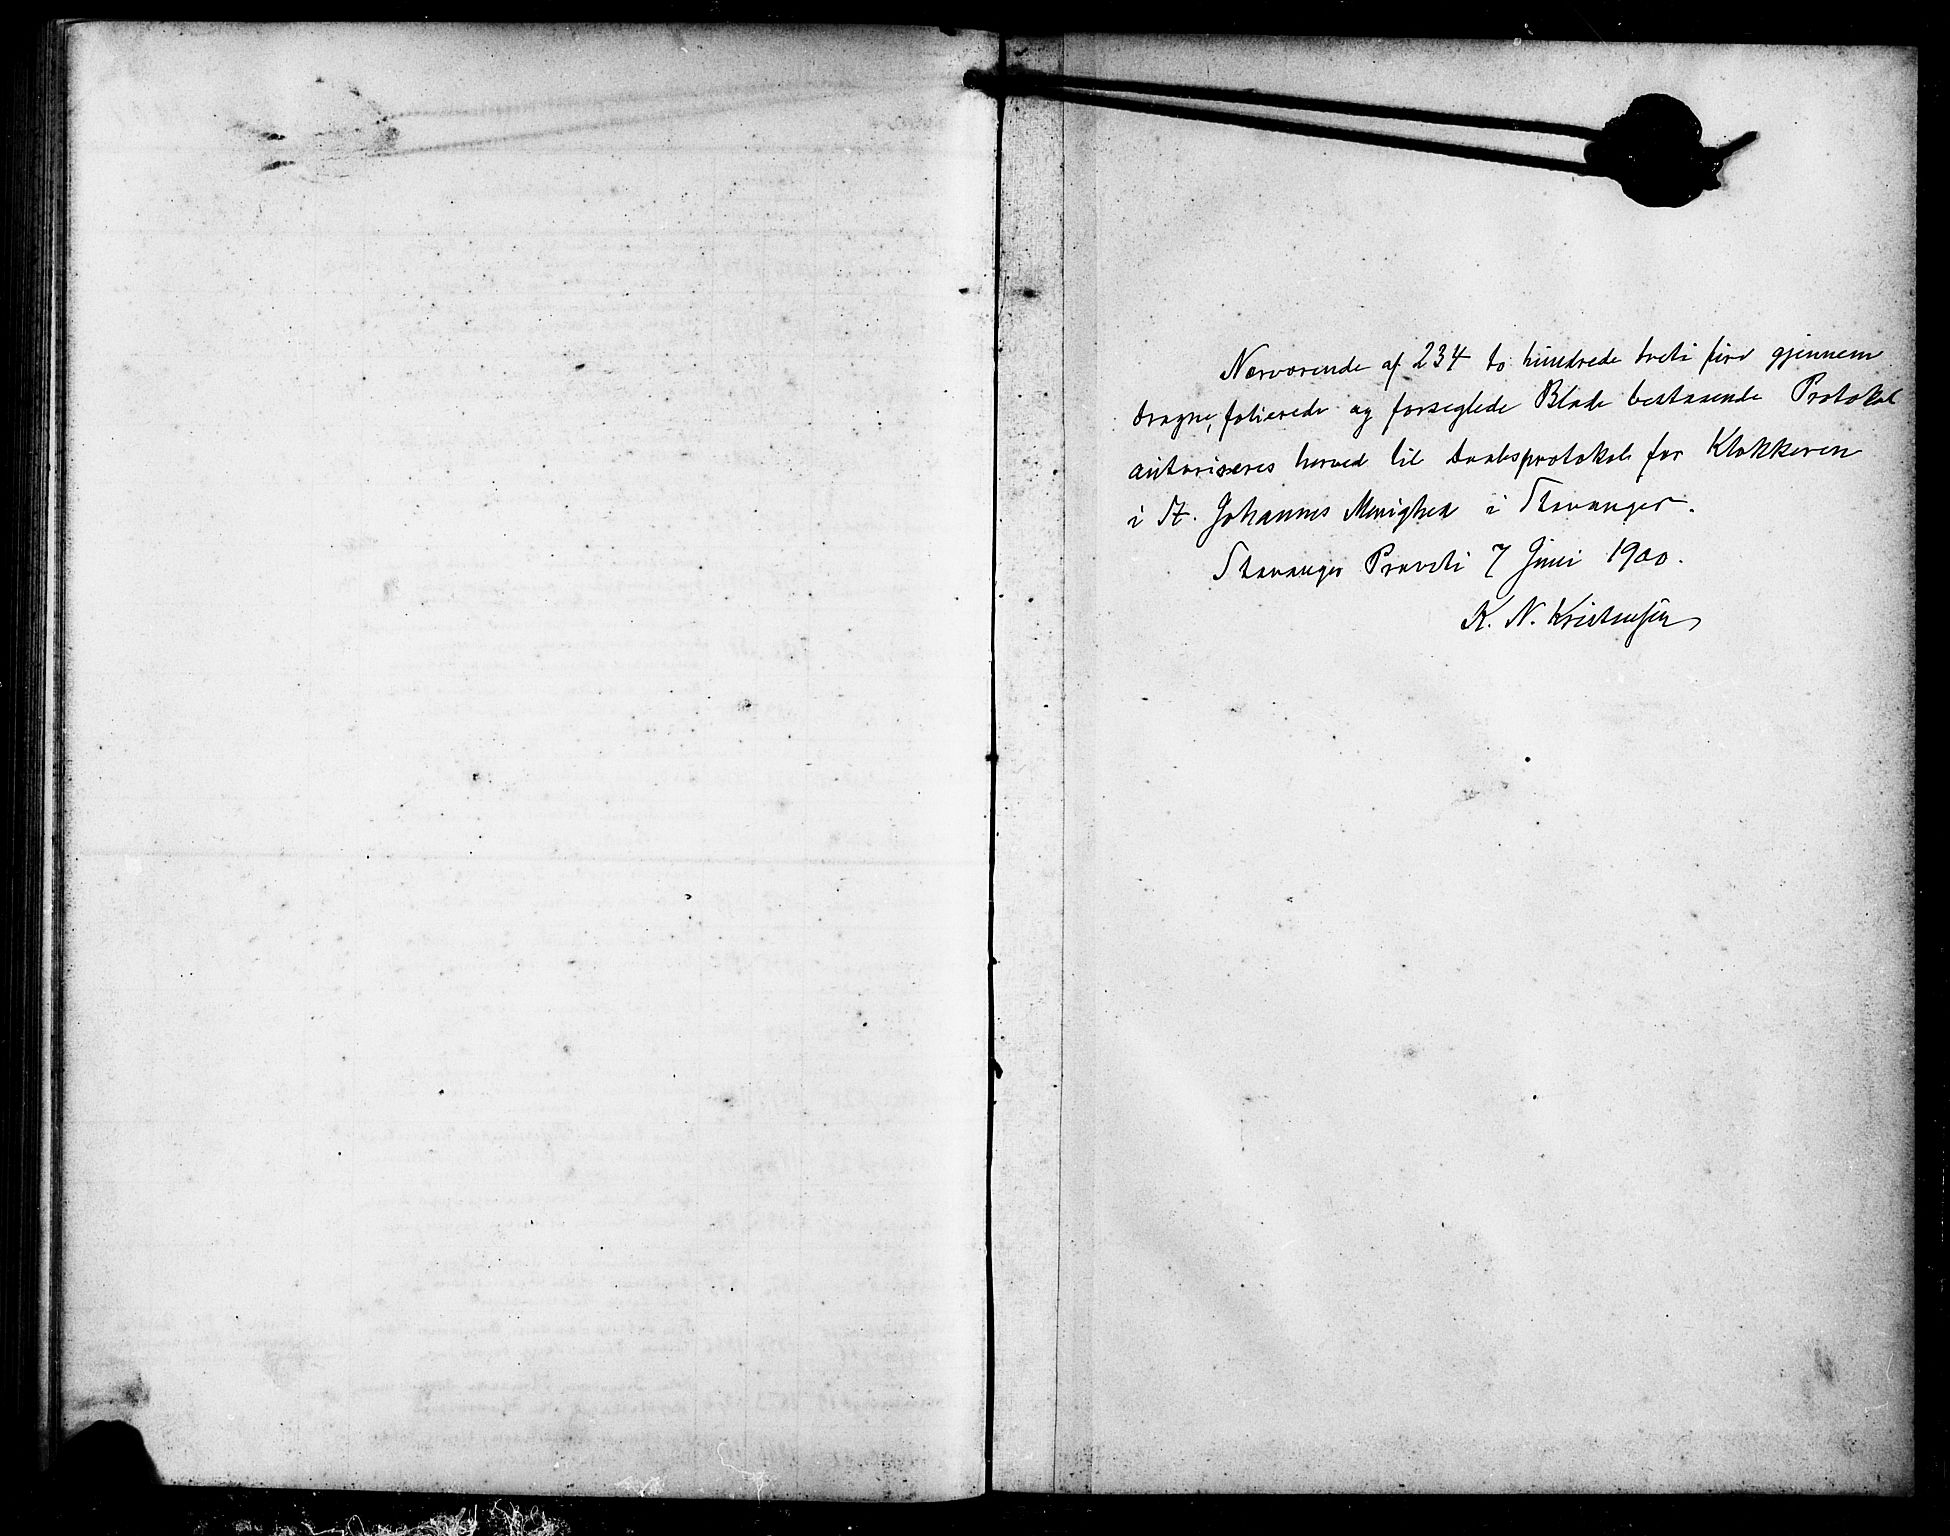 Nærværende af 234 to hundrede treti fire gjennem
dragne, folierede og forseglede Blade bestaaende Protokol
autoriseres herved til Daabsprotokol for Klokkeren
i St. Johannes Menighed i Stavanger.
Stavanger Provsti 7 Juni 1900.
K. N. Kristensen